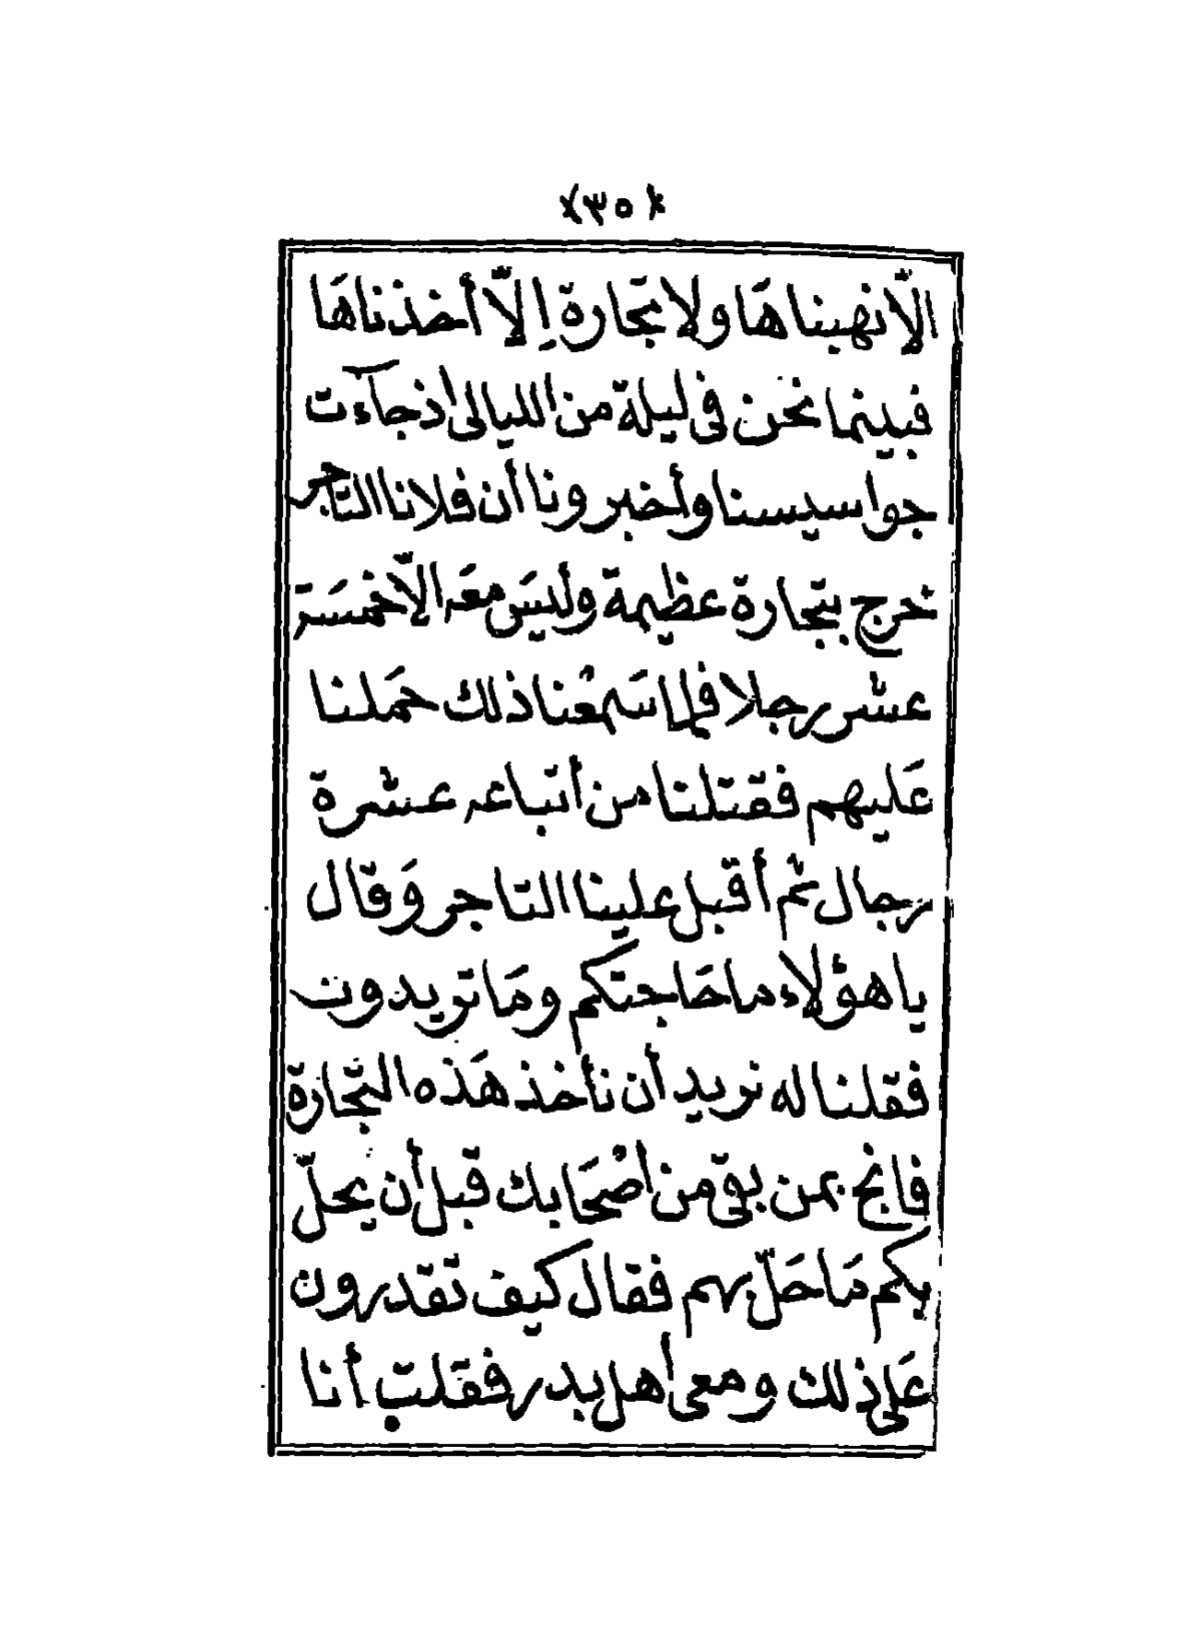 ﴿٣٥﴾
الّا نهبناهَا ولا تجارة إِلّا أخذناهَا
فبينما نحن فى ليلة من الليالى اذ جآءت
جواسيسنا وأخبرونا أن فلانا التاجر
خرج بتجارة عظيمة وليسَ معَه الّا خمسَة
عشر رجلا فلما سَمعْنا ذلك حمَلنا
عَليهم فقتلنا من أتباعه عشرة
رجال ثم أقبل علينا التاجر وَقال
يا هؤلاء ما حَاجتكم ومَا تريدون
فقلنا له نريد أن نأخذ هَذه التجارة
فانج بمن بقى من أصْحَابك قبل أن يحلّ
بكم مَا حَلّ بهم فقال كيف تقدرون
عَلى ذلك ومعى أهل بدر فقلت أنا